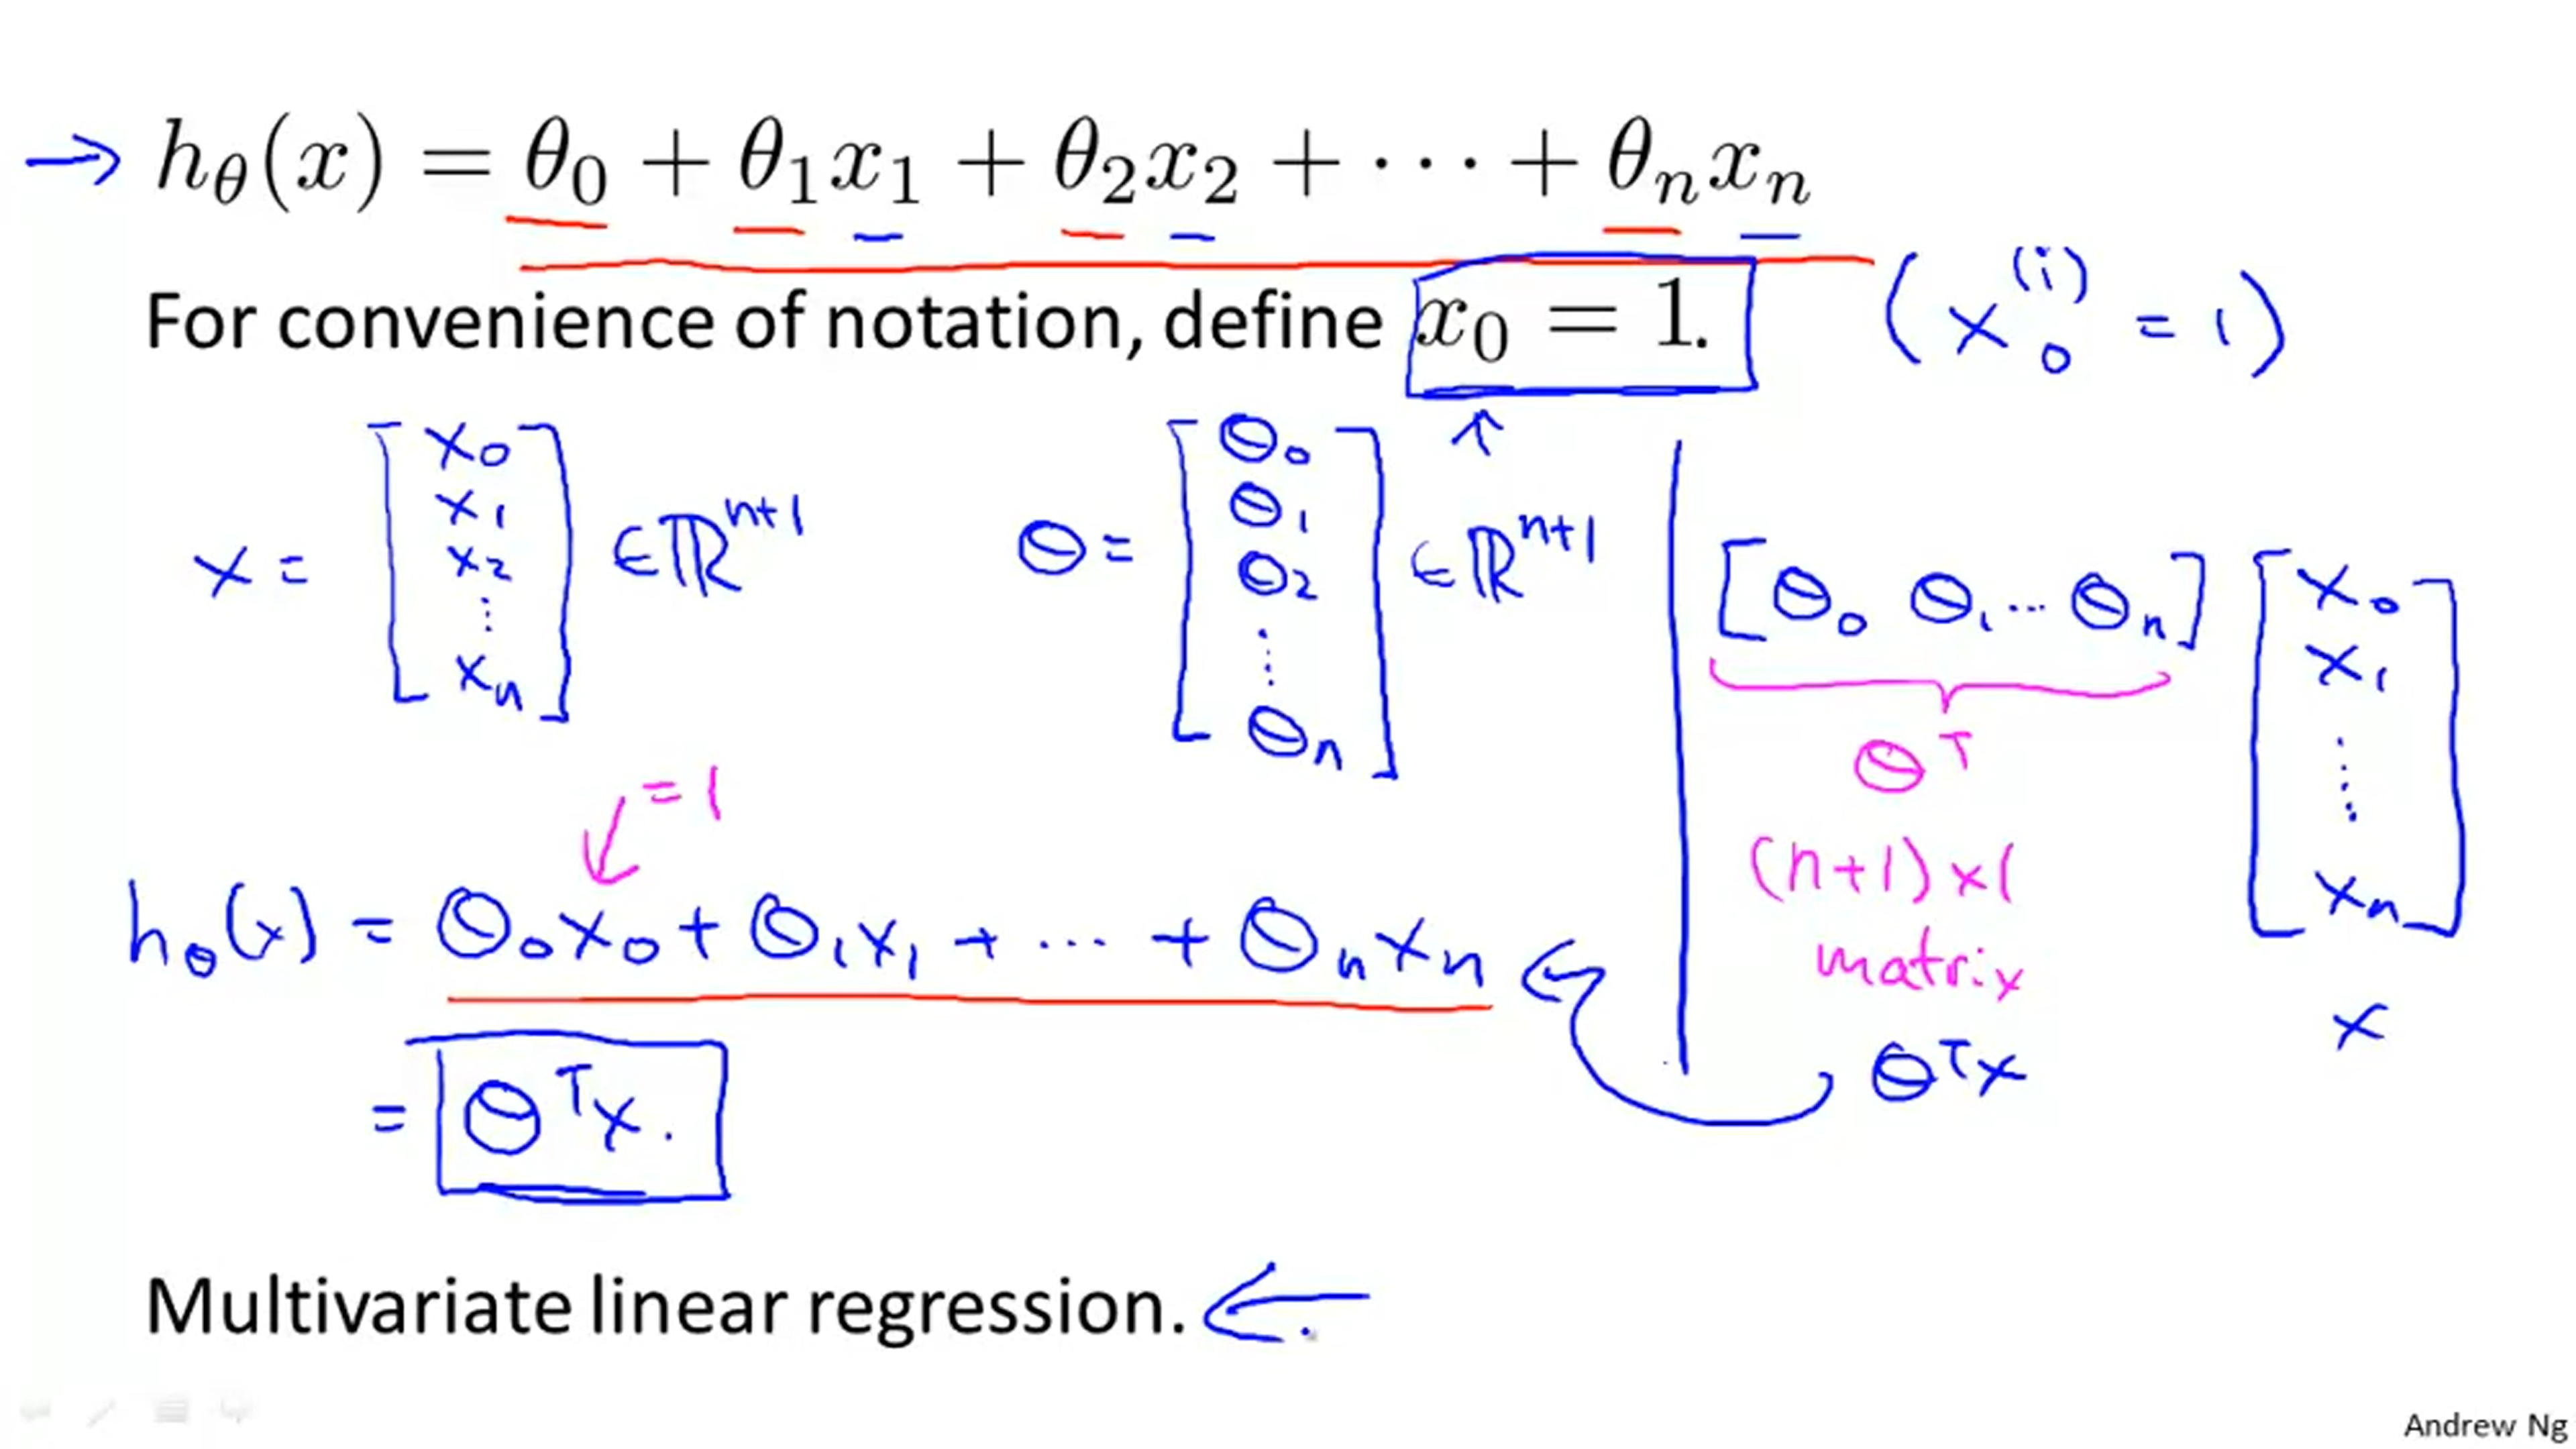 → hθ(x) = θ₀ + θ₁x₁ + θ₂x₂ + ⋯ + θₙxₙ
For convenience of notation, define x₀ = 1. (x₀⁽ⁱ⁾ = 1)
x = [x₀ x₁ x₂ ⋮ xₙ] ∈ ℝⁿ⁺¹
θ = [θ₀ θ₁ θ₂ ⋮ θₙ] ∈ ℝⁿ⁺¹
= 1
hθ(x) = θ₀x₀ + θ₁x₁ + ⋯ + θₙxₙ
= θᵀx.
[θ₀ θ₁ ⋯ θₙ] [x₀ x₁ ⋮ xₙ]
θᵀ
(n+1)×1
matrix
x
θᵀx
Multivariate linear regression. ←
Andrew Ng